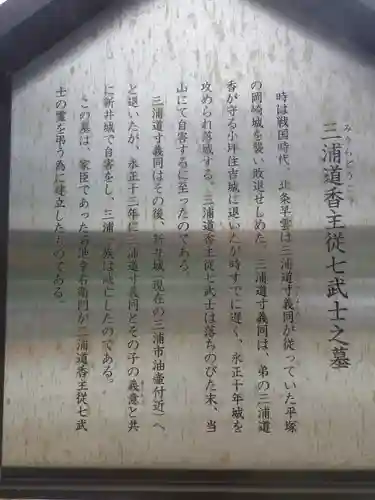 三浦道香主従七武士之墓
みうらどうこう
時は戦国時代、北条早雲は三浦道寸義同が従っていた平塚
の岡崎城を襲い敗退せしめた。三浦道寸義同は、弟の三浦道
香が守る小坪住吉城に退いたが時すでに遅く、永正十年城を
攻められ落城する。三浦道香主従七武士は落ちのびた末、当
山にて自害するに至ったのである。
三浦道寸義同はその後、新井城(現在の三浦市油壷付近)へ
と退いたが、永正十三年に三浦道寸義同とその子の義意と共
に新井城で自害をし、三浦一族は滅亡したのである。
この墓は、家臣であった 右衛門が三浦道香主従七武
士の霊を弔う為に建立したものである。